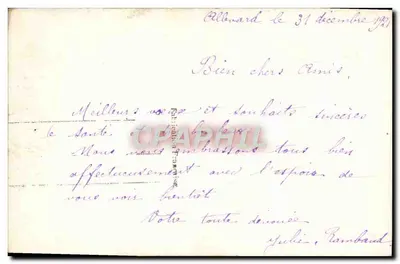 Allevard le 31 décembre 192
Bien chers Amis,
Meilleurs voeux et souhaits sincères
de santé,
CPARAMA
Nous vous embrassons tous bien
affectueusement avec l'espoir de
vous voir bientôt
Votre toute dévouée
Julie, Rambaud